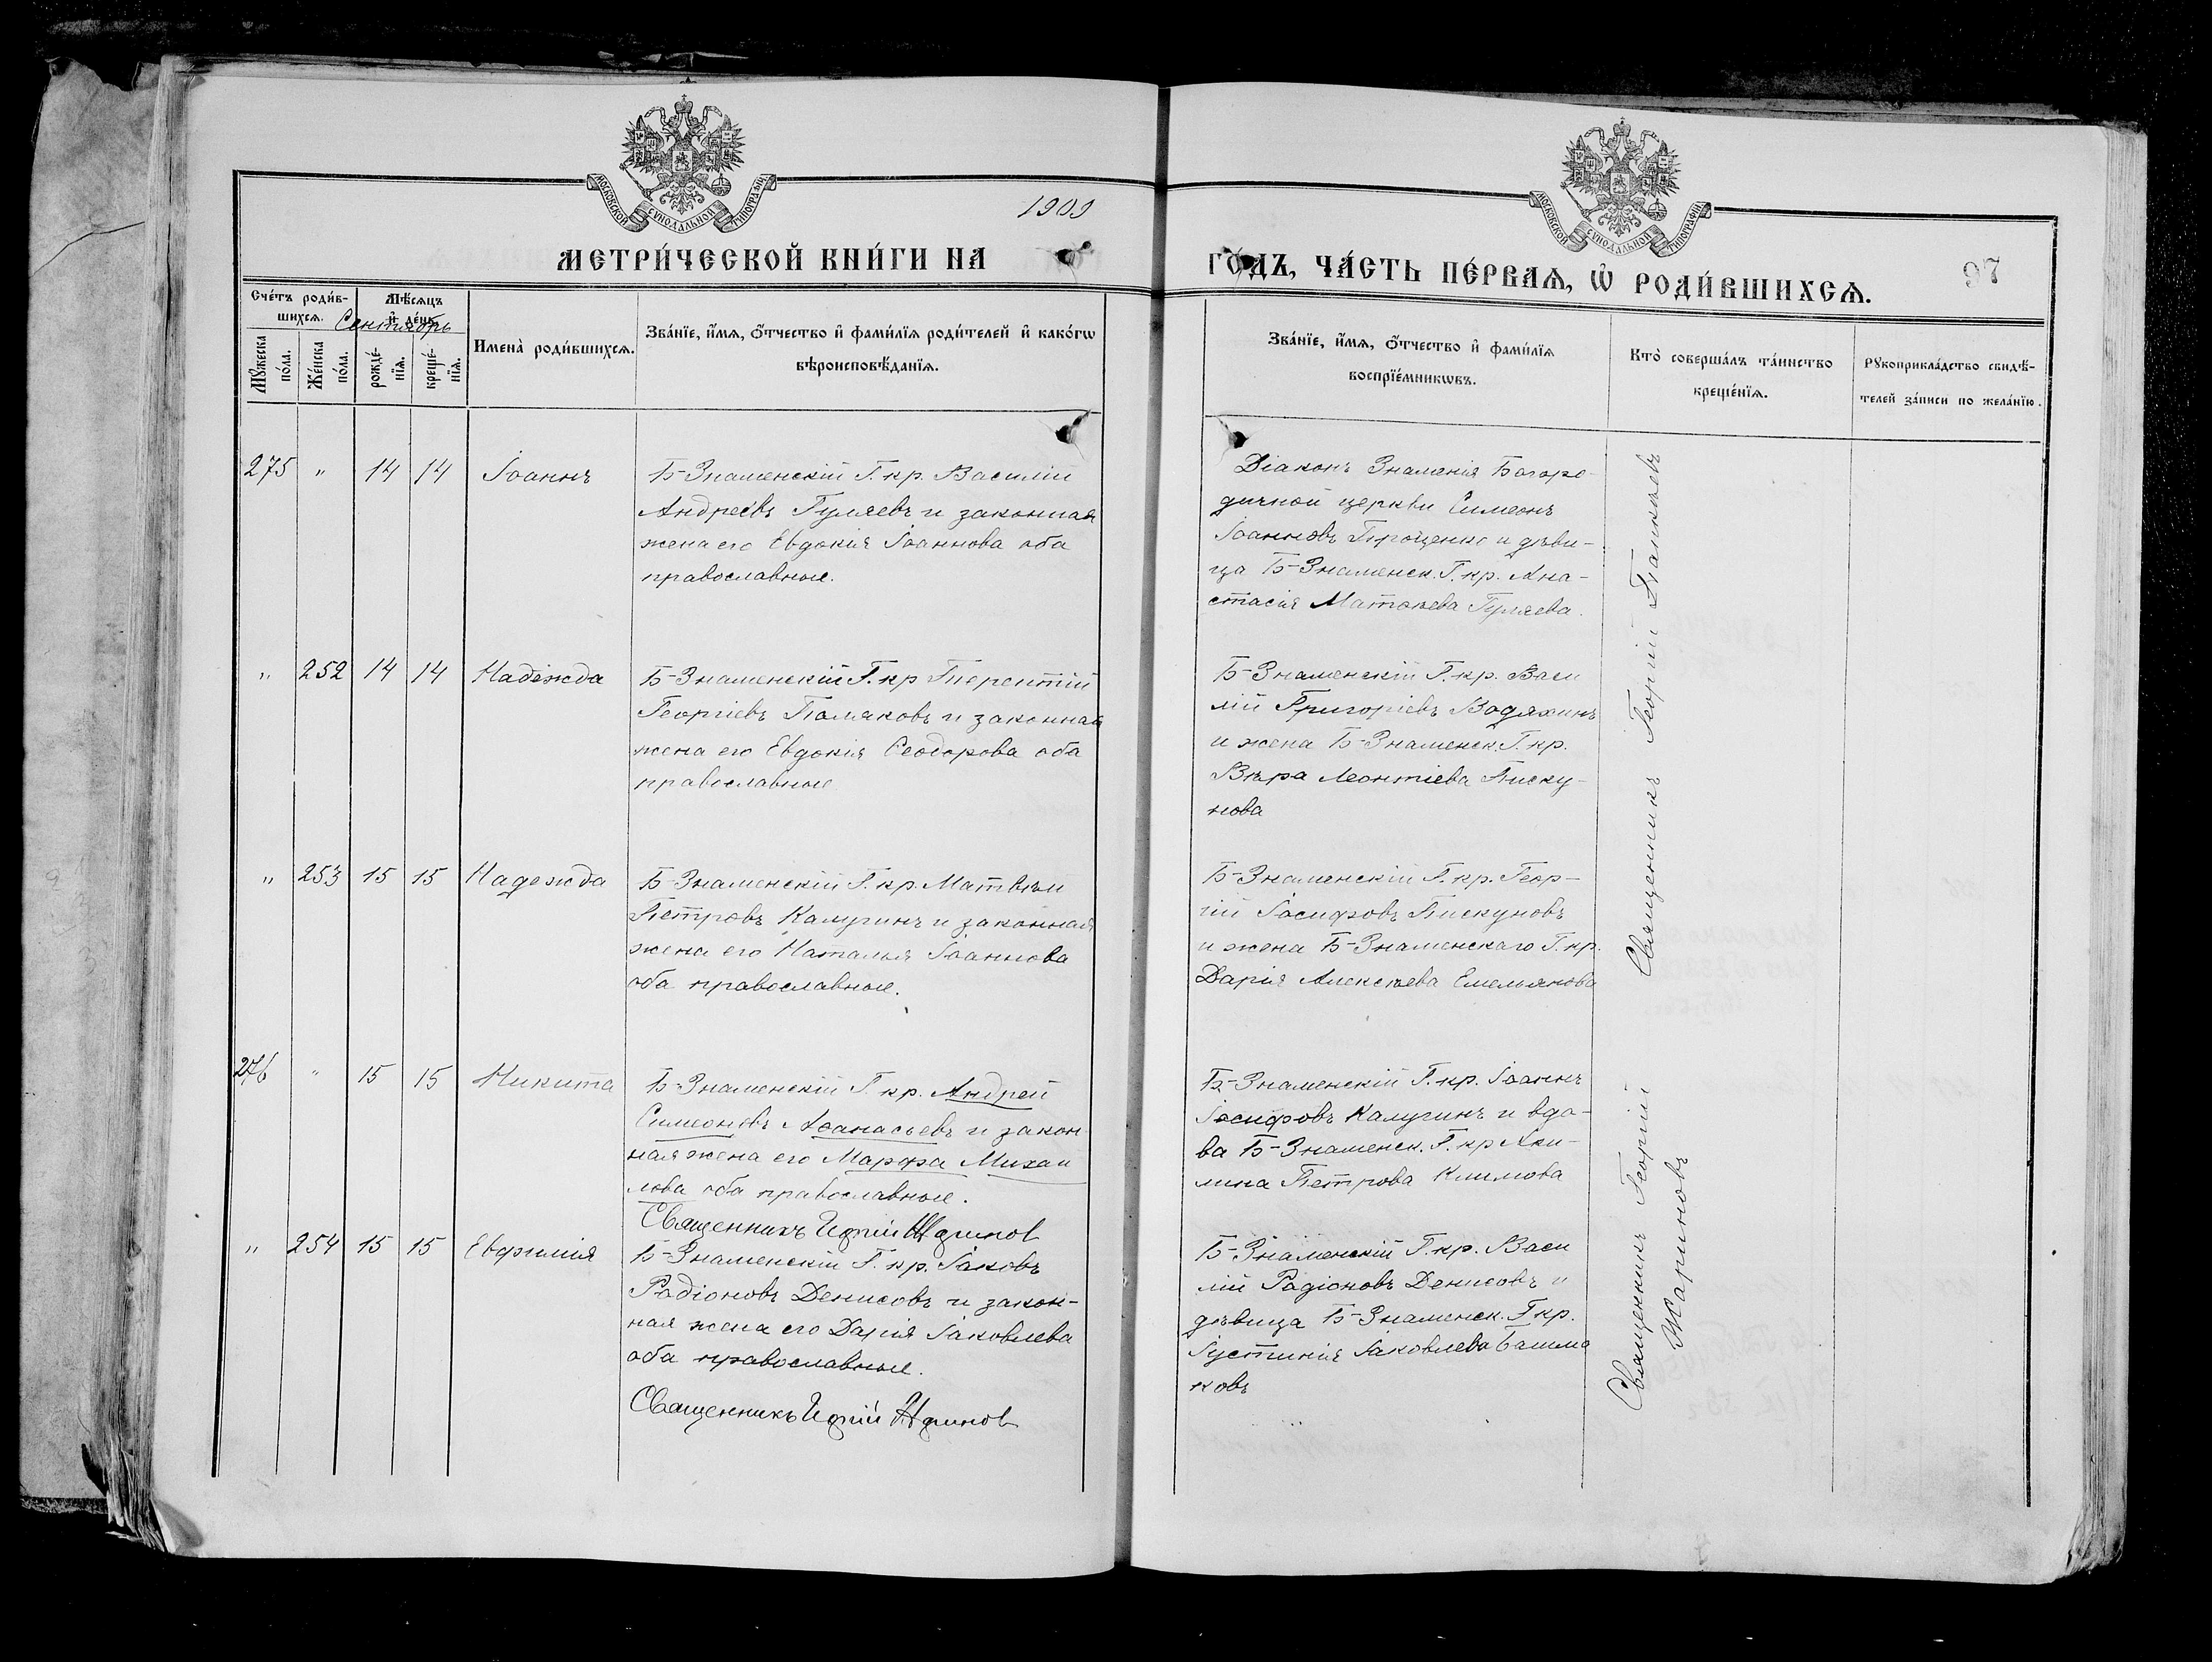 МОСКОВСКОЙ СѴНОДАЛЬНОЙ ТИПОГРАФІИ
МОСКОВСКОЙ СѴНОДАЛЬНОЙ ТИПОГРАФІИ
1909
МЕТРИ́ЧЕСКОЙ КНИ́ГИ НА
ГО́ДЪ, ЧА́СТЬ ПЕ́РВАѦ, Ѡ҆ РОДИ́ВШИХСѦ.
97
Сче́тъ роди́в-
шихсѧ.
Мѣ́сѧцъ
и҆ де́нь
Сентябрь
Мꙋ́жеска по́ла.
Же́нска по́ла.
рожде́-нїѧ.
креще́-нїѧ.
Имена̀ роди́вшихсѧ.
Зва́нїе, и҆́мѧ, ѻ҆́тчество и҆ фами́лїѧ роди́телей и҆ како́гѡ
вѣроисповѣ́данїѧ.
Зва́нїе, и҆́мѧ, ѻ҆́тчество и҆ фами́лїѧ
воспрїе́мникѡвъ.
Кто̀ соверша́лъ та́инство
креще́нїѧ.
Рꙋкоприкла́дство свидѣ́-
телей за́писи по жела́нїю.
275 " 14 14 Іоаннъ
Б-Знаменскій Г. кр. Василій
Андреевъ Гуляевъ и законная
жена его Евдокія Іоаннова оба
православные.
Діаконъ Знаменія Богоро-
дичной церкви Симеонъ
Іоанновъ Проценко и дѣви-
ца Б-Знаменск. Г. кр. Ана-
стасія Матѳеева Гуляева.
" 252 14 14 Надежда
Б-Знаменскій Г. кр Терентій
Георгіевъ Поляковъ и законная
жена его Евдокія Ѳеодорова оба
православные
Б-Знаменскій Г. кр. Васи
лій Григоріевъ Водяхинъ
и жена Б-Знаменск. Г. кр.
Вѣра Леонтіева Писку-
нова
" 253 15 15 Надежда
Б-Знаменскій Г. кр. Матвѣй
Петровъ Калугинъ и законная
жена его Наталья Іоаннова
оба православные.
Б-Знаменскій Г. кр. Геор-
гій Іосифовъ Пискуновъ
и жена Б-Знаменскаго Г. кр.
Дарія Алексѣева Емельянова
Священникъ Георгій
276 " 15 15 Никита
Б-Знаменскій Г. кр. Андрей
Симеоновъ Аѳанасьевъ и закон
ная жена его Марфа Михаи
лова оба православные.
Священникъ Георгій Жариновъ
Б-Знаменскій Г. кр. Іоаннъ
Іосифовъ Калугинъ и вдо-
ва Б-Знаменск. Г. кр Аки-
лина Петрова Климова
" 254 15 15 Евфимія
Б-Знаменскій Г. кр. Іаковъ
Радіоновъ Денисовъ и закон-
ная жена его Дарія Іаковлева
оба православные.
Священникъ Георгій Жариновъ
Б-Знаменскій Г. кр. Васи
лій Радіоновъ Денисовъ и
дѣвица Б-Знаменск. Г кр.
Іустинія Іаковлева Башма
ковъ
Священникъ Георгій
Жариновъ